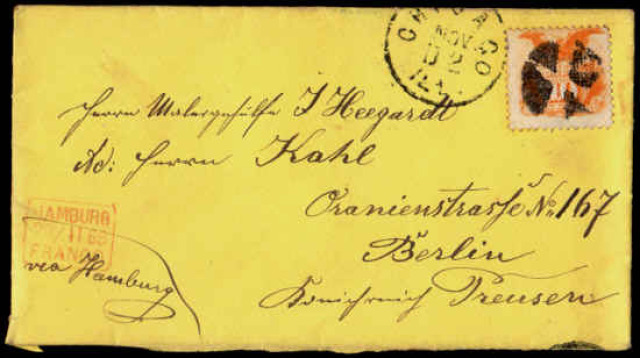 CHICAGO
NOV
ILL.
Herrn Malergehülfe J Heegardt
Ad: Herrn Kahl
Oranienstrasse No. 167
HAMBURG
11 69
FRANCO
Berlin
via Hamburg
Königreich Preusen